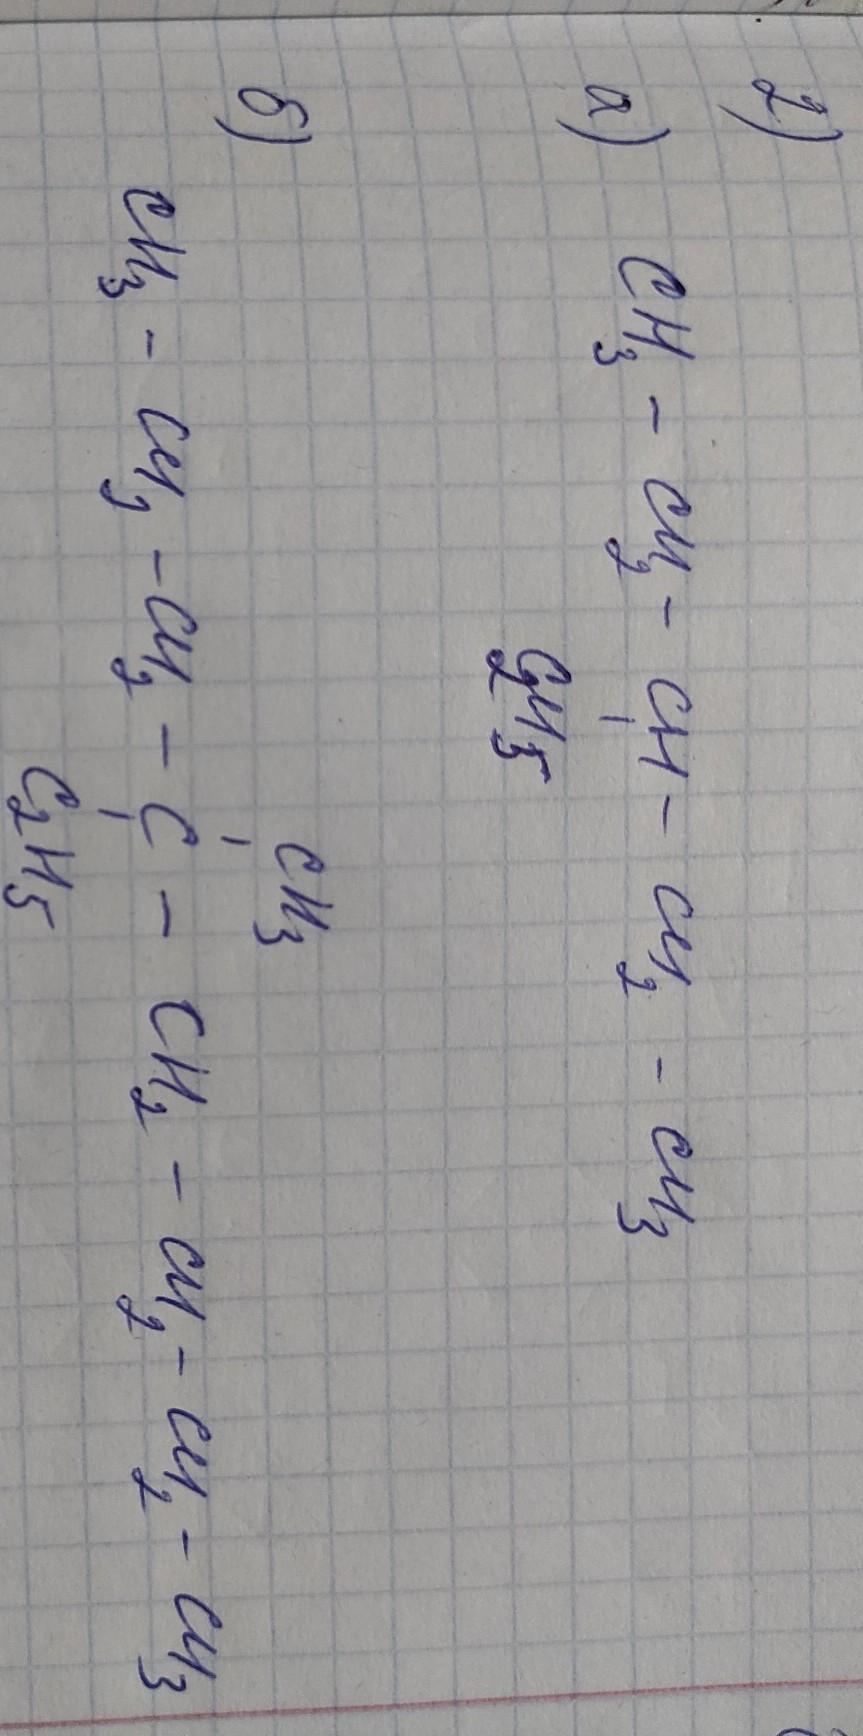 2)
а) CH3 - CH2 - CH - CH2 - CH3
C2H5
б)
CH3
CH3 - CH2 - CH2 - C - CH2 - CH2 - CH2 - CH3
C2H5